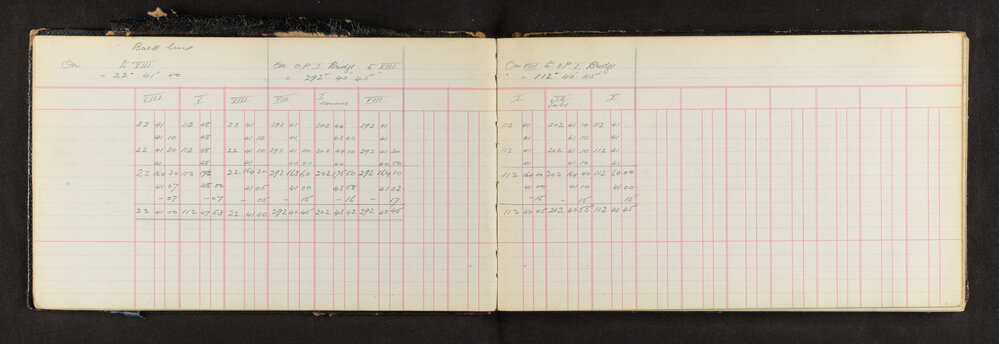 Back line
On to VIII
= 22° 41' 00
On O.P. I Dudg to VIII
= 292° 40' 45"
VIII V VIII VIII I VIII
22 41 112 48 22 41 292 41 202 44 292 41
41 10 48 41 10 41 43 40 41
22 41 20 112 48 22 41 10 292 41 20 202 44 10 292 41 20
41 48 41 40 60 44 40 50
22 164 30 112 192 22 164 20 292 163 60 202 175 50 292 164 10
41 07 48 00 41 05 41 00 43 58 41 02
- 07 - 07 - 05 - 15 - 16 - 17
22 41 00 112 47 53 22 41 00 292 40 45 202 43 42 292 40 45
On VIII to O.P. I Dudg
= 112° 40' 45"
I I
112 41 202 41 10 112 41
41 41 10 41
112 41 202 41 10 112 41
41 41 10 41
112 164 00 202 164 40 112 164 00
41 00 41 10 41 00
- 15 - 15 15
112 40 45 202 40 55 112 40 45